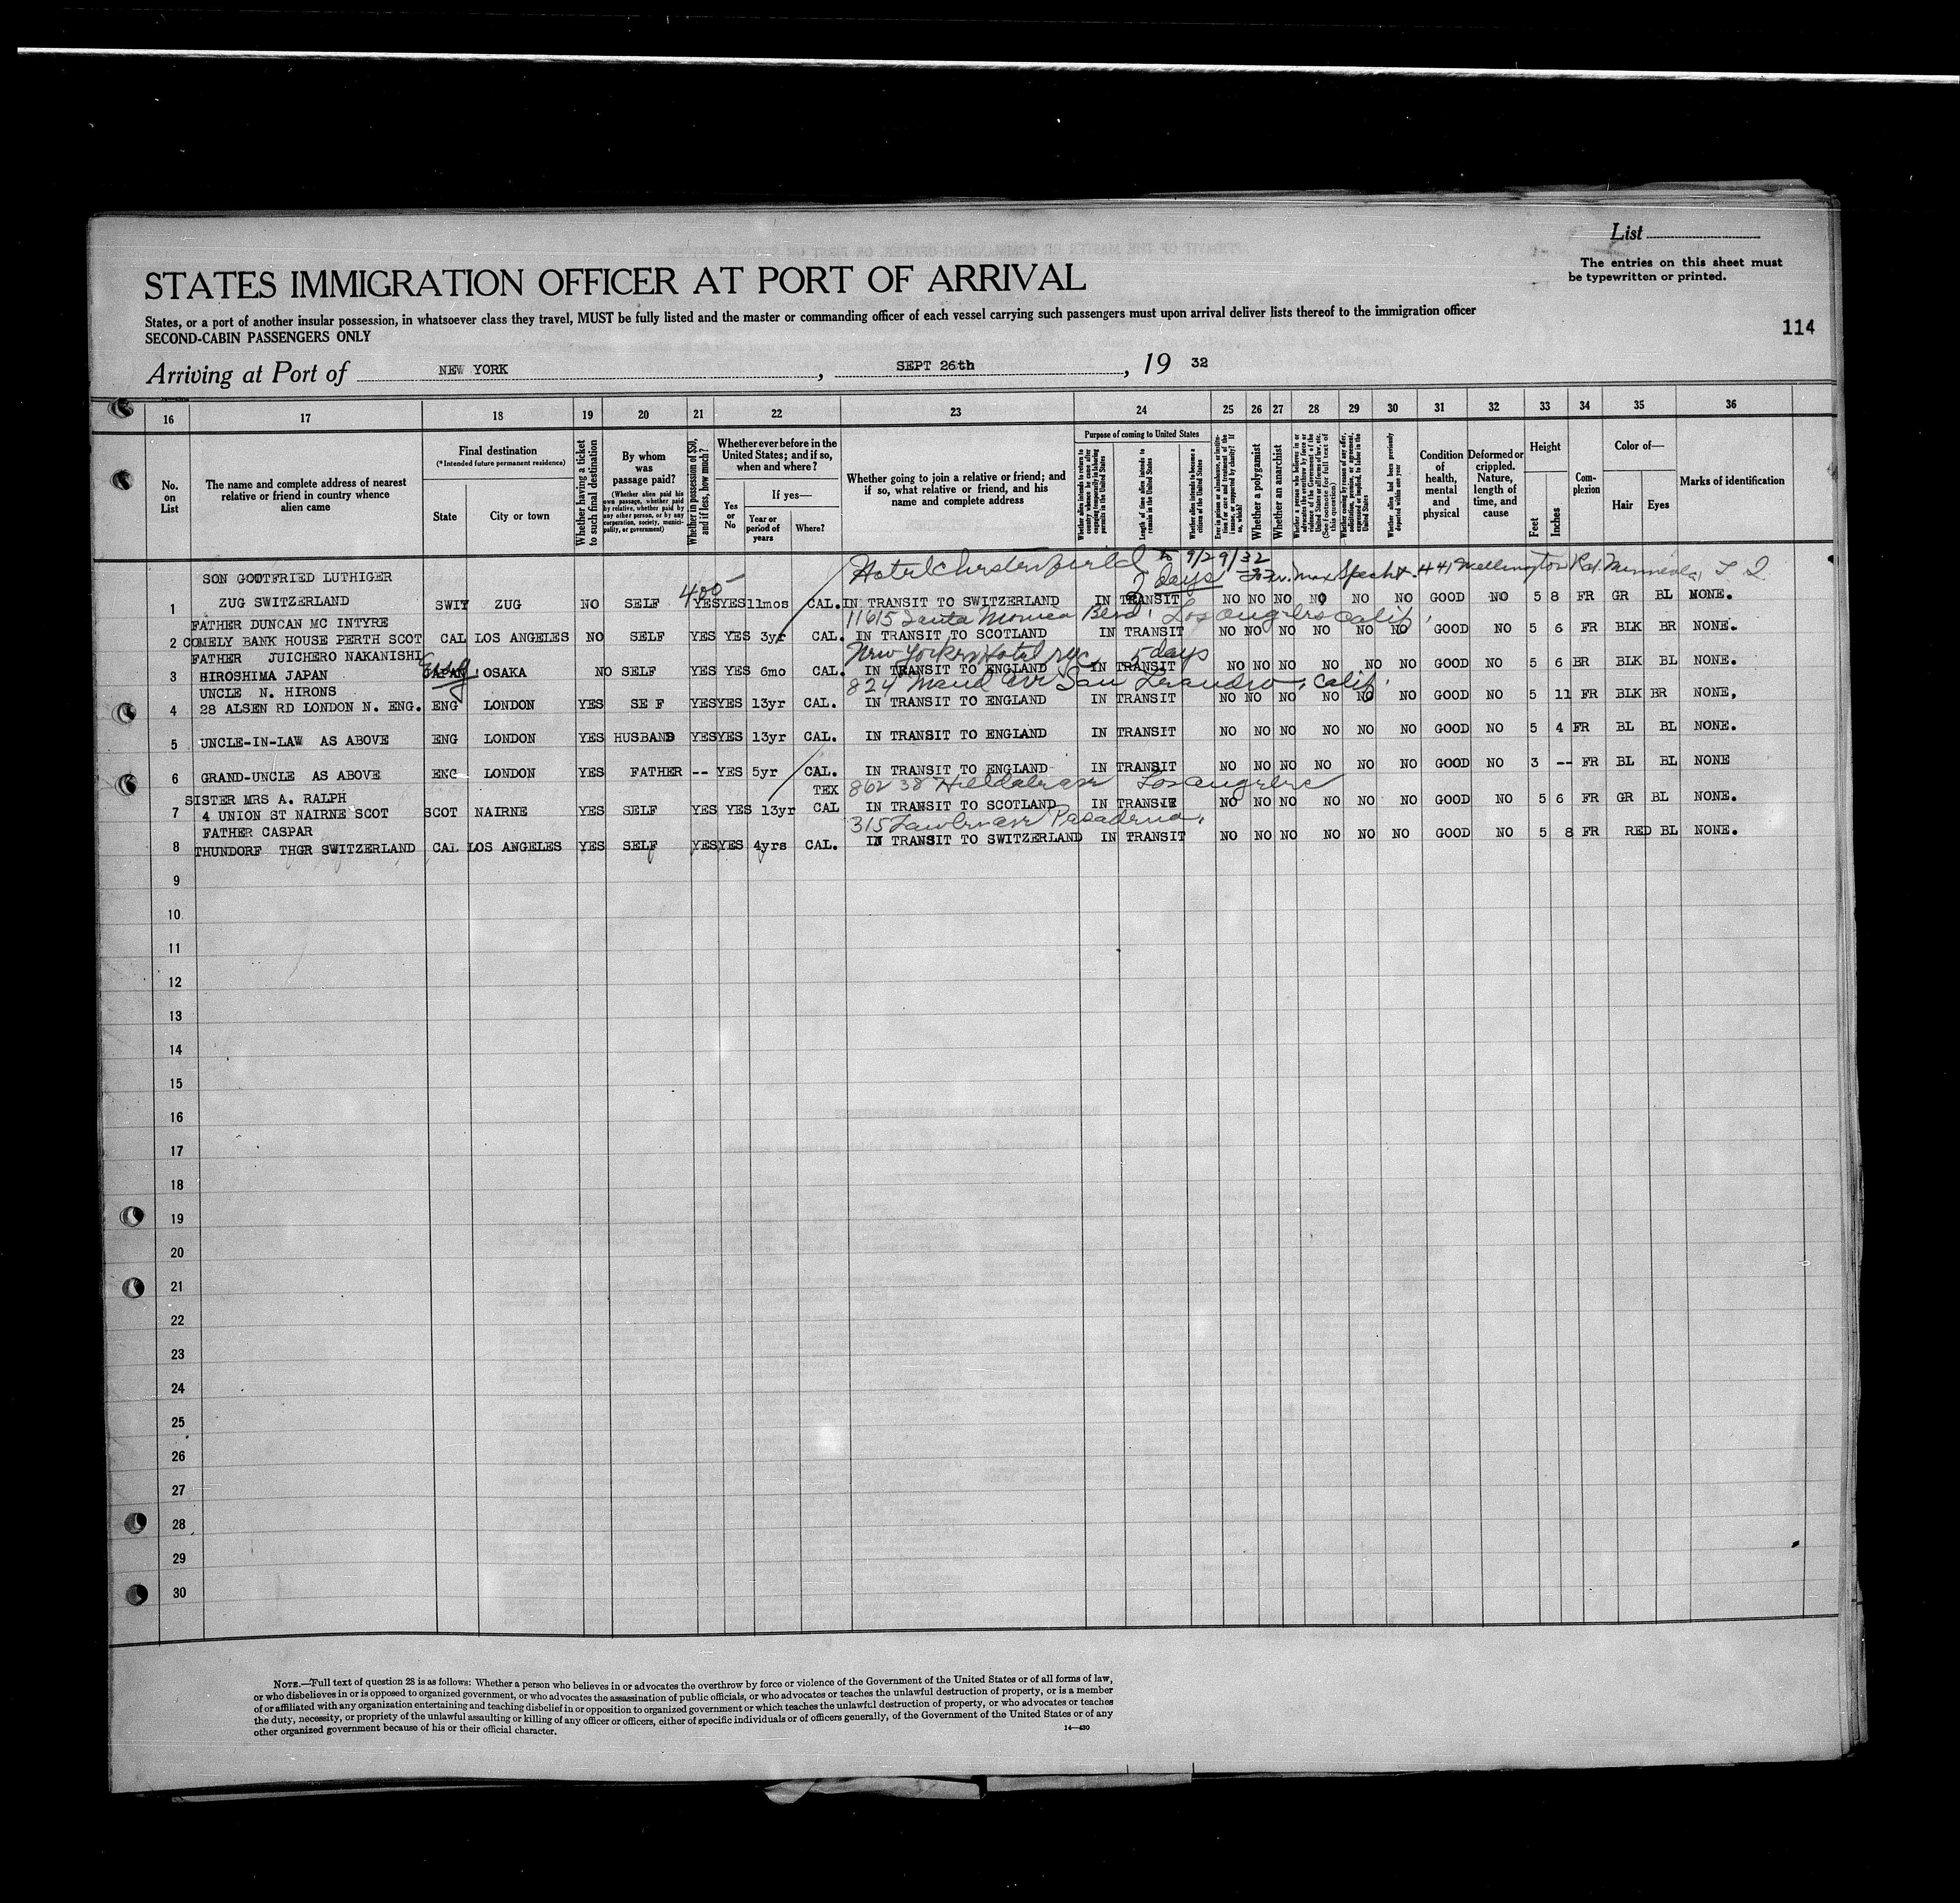 List
The entries on this sheet must
be typewritten or printed.
STATES IMMIGRATION OFFICER AT PORT OF ARRIVAL
States, or a port of another insular possession, in whatsoever class they travel, MUST be fully listed and the master or commanding officer of each vessel carrying such passengers must upon arrival deliver lists thereof to the immigration officer
SECOND-CABIN PASSENGERS ONLY
114
Arriving at Port of NEW YORK, SEPT 26th, 19 32
16 17 18 19 20 21 22 23 24 25 26 27 28 29 30 31 32 33 34 35 36
No. on List
The name and complete address of nearest relative or friend in country whence alien came
Final destination
(*Intended future permanent residence)
State
City or town
Whether having a ticket to such final destination
By whom was passage paid?
(Whether alien paid his own passage, whether paid by relative, whether paid by any other person, or by any corporation, society, municipality, or government)
Whether in possession of $50, and if less, how much?
Whether ever before in the United States; and if so, when and where?
Yes or No
If yes—
Year or period of years
Where?
Whether going to join a relative or friend; and if so, what relative or friend, and his name and complete address
Purpose of coming to United States
Length of time alien intends to remain in the United States
Whether alien intends to become a citizen of the United States
Whether a polygamist
Whether an anarchist
Condition of health, mental and physical
Deformed or crippled. Nature, length of time, and cause
Height
Feet
Inches
Complexion
Color of—
Hair
Eyes
Marks of identification
Hotel Chesterfield to 9/29/32
2 days Max Specht 441 Wellington Rd. Mineola, L. I.
SON GODTFRIED LUTHIGER 400
1 ZUG SWITZERLAND SWIT ZUG NO SELF YES YES 11mos CAL. IN TRANSIT TO SWITZERLAND IN TRANSIT NO NO NO NO NO NO GOOD NO 5 8 FR GR BL NONE.
FATHER DUNCAN MC INTYRE 11615 Santa Monica Blvd. Los Angeles Calif.
2 COMELY BANK HOUSE PERTH SCOT CAL LOS ANGELES NO SELF YES YES 3yr CAL. IN TRANSIT TO SCOTLAND IN TRANSIT NO NO NO NO NO NO GOOD NO 5 6 FR BLK BR NONE.
FATHER JUICHERO NAKANISHI New Yorker Hotel NYC 5 days
3 HIROSHIMA JAPAN JAPAN OSAKA NO SELF YES YES 6mo CAL. IN TRANSIT TO ENGLAND IN TRANSIT NO NO NO NO NO NO GOOD NO 5 6 BR BLK BL NONE.
UNCLE N. HIRONS 824 Maud Ave San Leandro, Calif.
4 28 ALSEN RD LONDON N. ENG. ENG LONDON YES SE F YES YES 13yr CAL. IN TRANSIT TO ENGLAND IN TRANSIT NO NO NO NO NO NO GOOD NO 5 11 FR BLK BR NONE,
5 UNCLE-IN-LAW AS ABOVE ENG LONDON YES HUSBAND YES YES 13yr CAL. IN TRANSIT TO ENGLAND IN TRANSIT NO NO NO NO NO NO GOOD NO 5 4 FR BL BL NONE.
6 GRAND-UNCLE AS ABOVE ENG LONDON YES FATHER -- YES 5yr CAL. IN TRANSIT TO ENGLAND IN TRANSIT NO NO NO NO NO NO GOOD NO 3 -- FR BL BL NONE
SISTER MRS A. RALPH TEX 862 38 Los Angeles
7 4 UNION ST NAIRNE SCOT SCOT NAIRNE YES SELF YES YES 13yr CAL IN TRANSIT TO SCOTLAND IN TRANSIT NO NO NO NO NO NO GOOD NO 5 6 FR GR BL NONE.
FATHER CASPAR 315 Pasadena.
8 THUNDORF THGR SWITZERLAND CAL LOS ANGELES YES SELF YES YES 4yrs CAL. IN TRANSIT TO SWITZERLAND IN TRANSIT NO NO NO NO NO NO GOOD NO 5 8 FR RED BL NONE.
9
10
11
12
13
14
15
16
17
18
19
20
21
22
23
24
25
26
27
28
29
30
NOTE.—Full text of question 28 is as follows: Whether a person who believes in or advocates the overthrow by force or violence of the Government of the United States or of all forms of law,
or who disbelieves in or is opposed to organized government, or who advocates the assassination of public officials, or who advocates or teaches the unlawful destruction of property, or is a member
of or affiliated with any organization entertaining and teaching disbelief in or opposition to organized government or which teaches the unlawful destruction of property, or who advocates or teaches
the duty, necessity, or propriety of the unlawful assaulting or killing of any officer or officers, either of specific individuals or of officers generally, of the Government of the United States or of any
other organized government because of his or their official character.
14—430